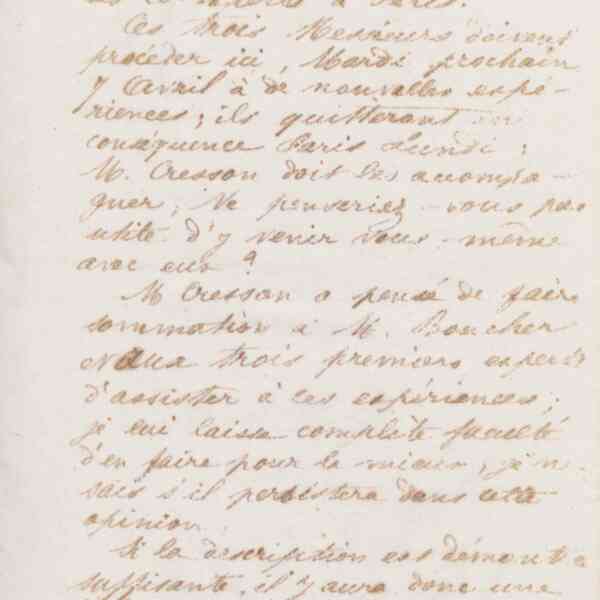 à Paris.
Ces trois Messieurs doivent
procéder ici, Mardi prochain
7 Avril à de nouvelles expé-
riences; ils quitteront en
conséquence Paris Lundi;
M. Cresson doit les accompa-
gner; Ne penseriez-vous pas
utile d'y venir vous-même
avec eux ?
M Cresson a pensé de faire
sommation à M. Boucher
et aux trois premiers experts
d'assister à ces expériences;
je lui laisse complète faculté
d'en faire pour le mieux, je ne
sais s'il persistera dans cette
opinion.
Si la description est démontrée
suffisante, il y aura donc une